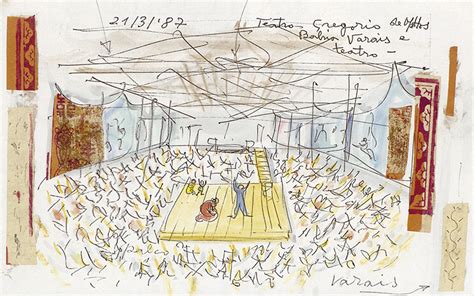 21/3/'87 Teatro Gregorio de Mattos
Varais e
teatro -
varais